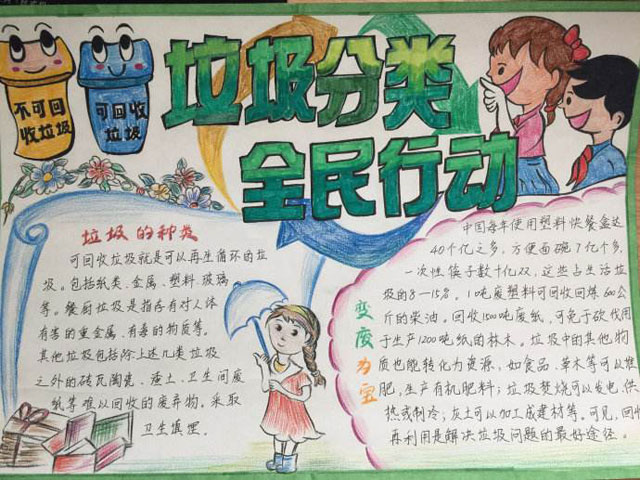 不可回
收垃圾
可回收
垃圾
垃圾分类
全民行动
垃圾的种类
可回收垃圾就是可以再生循环的垃
圾。包括纸类、金属、塑料、玻璃
等。餐厨垃圾是指存有对人体
有害的重金属、有毒的物质等。
其他垃圾包括除上述几类垃圾
之外的砖瓦陶瓷、渣土、卫生间废
纸等难以回收的废弃物。采取
卫生填埋。
变废为宝
中国每年使用塑料快餐盒达
40个亿之多,方便面碗7亿个多,
一次性筷子数十亿双,这些占生活垃
圾的8—15%。10吨废塑料可回收回炼600公
斤的柴油。回收1500吨废纸,可免于砍伐用
于生产1200吨纸的林木。垃圾中的其他物
质也能转化为资源,如食品、草木等可以堆
肥,生产有机肥料;垃圾焚烧可以发电、供
热或制冷;灰土可以加工成建材等。可见,回收
再利用是解决垃圾问题的最好途径。